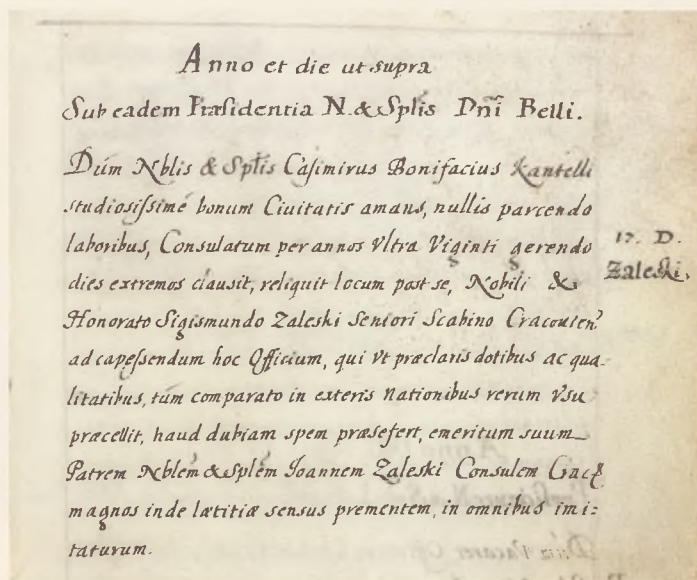 Anno et die ut supra
Sub eadem Præsidentia N. & Splis Dn̄i Belli.
Dum Nblis & Sptis Casimirus Bonifacius Kantelli
studiosissimé bonum Ciuitatis amans, nullis parcendo
laboribus, Consulatum per annos Vltra Viginti gerendo
dies extremos clausit, reliquit locum post se, Nobili &
Honorato Sigismundo Zaleski Seniori Scabino Cracouien?
ad capessendum hoc Officium, qui Vt præclaris dotibus ac qua-
litatibus, tum comparato in exteris Nationibus rerum Vsu
præcellit, haud dubiam spem præsefert, emeritum suum
Patrem Nblem & Splem Joannem Zaleski Consulem
magnos inde lætitiæ sensus prementem, in omnibus imi:
taturum.
17. D.
Zaleski.